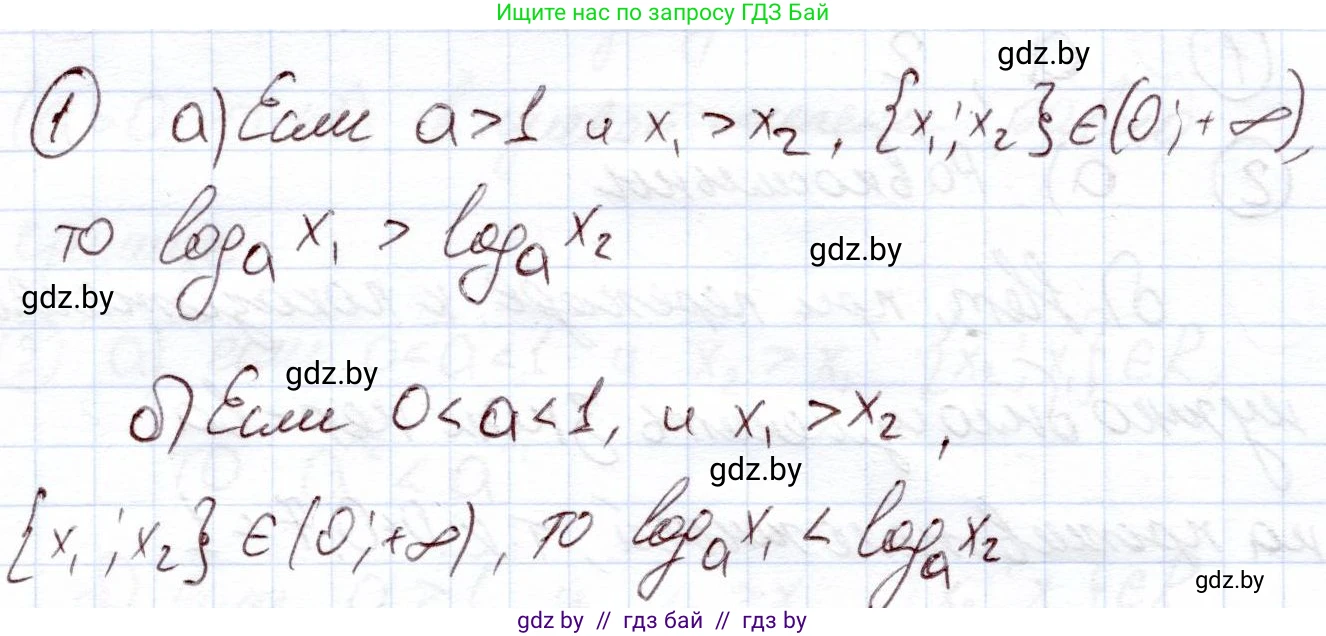 Ищите нас по запросу ГДЗ Бай
gdz.by
① а) Если a > 1 и x₁ > x₂, {x₁; x₂} ∈ (0; +∞),
то logₐ x₁ > logₐ x₂
gdz.by
gdz.by
gdz.by
б) Если 0 < a < 1, и x₁ > x₂,
gdz.by
{x₁; x₂} ∈ (0; +∞), то logₐ x₁ < logₐ x₂
gdz.by
gdz by // гдз бай // гдз by